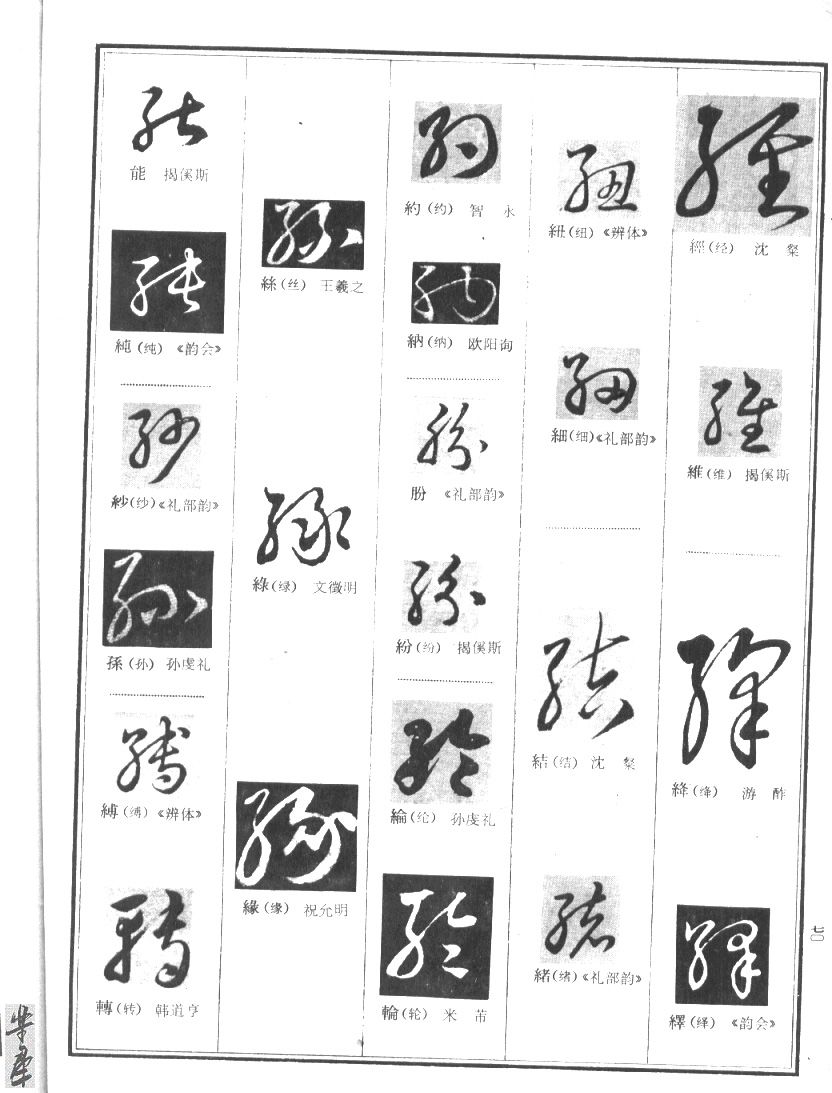 經(经) 沈 粲
維(维) 揭傒斯
絳(绛) 游 酢
繹(绎) 《韵会》
紐(纽) 《辨体》
細(细)《礼部韵》
結(结) 沈 粲
緒(绪)《礼部韵》
約(约) 智 永
納(纳) 欧阳询
肦 《礼部韵》
紛(纷) 揭傒斯
綸(纶) 孙虔礼
輪(轮) 米 芾
絲(丝) 王羲之
綠(绿) 文徵明
緣(缘) 祝允明
能 揭傒斯
純(纯) 《韵会》
紗(纱)《礼部韵》
孫(孙) 孙虔礼
縛(缚) 《辨体》
轉(转) 韩道亨
七〇